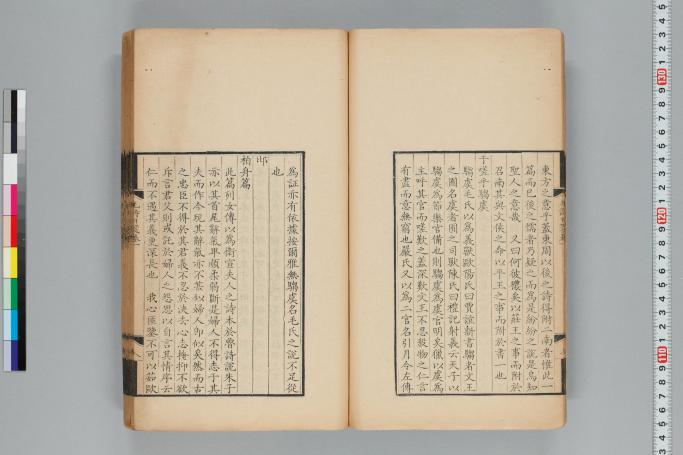 東方之意乎蓋東周以後之詩得附二南者惟此一
篇而已後之儒者乃疑之而為是紛紛之說是烏知
聖人之意哉 又曰何彼襛矣以莊王之事而附於
召南其與文侯之命以平王之事而附於書一也
于嗟乎騶虞
騶虞毛氏以為義獸歐陽氏曰賈誼新書騶者文王
之囿名虞者囿之司獸陳氏曰禮記射義云天子以
騶虞為節樂官備也則騶虞為虞官明矣獵以虞為
主呼其官而嗟歎之蓋深歎文王不忍殺物之仁言
有盡而意無窮也嚴氏又以為二官名引月令左傳
為証亦有依據按爾雅無騶虞名毛氏之說不足從
也
邶
柏舟篇
此篇列女傳以為衛宣夫人之詩本於魯詩說朱子
亦以其首尾辭氣卑順柔弱斷是婦人不得志于其
夫而作今玩其辭氣亦不甚似婦人仰似矣然而古
之忠臣不得於其君義不忍於決去心志掩抑不欲
斥言君父則或託於婦人之怨思以自言其情序云
仁而不遇其義更深長也 我心匪鑒不可以茹歐